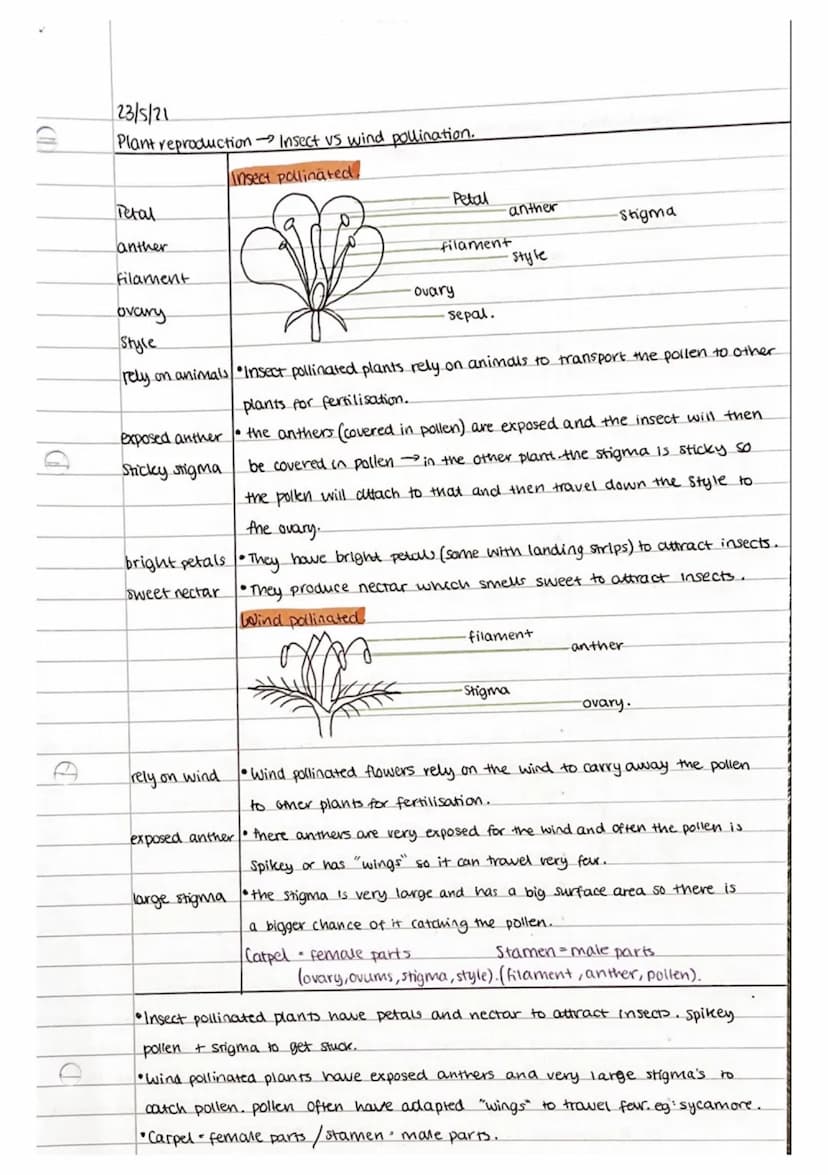 23/5/21
Plant reproduction → Insect vs wind pollination.
Insect pollinated.
Petal
anther
filament
ovary
Style
Petal
anther
Stigma
filament
Style
ovary
sepal.
rely on animals
•Insect pollinated plants rely on animals to transport the pollen to other
plants for fertilisation.
exposed anther
Sticky stigma
• the anthers (covered in pollen) are exposed and the insect will then
be covered in pollen → in the other plant the stigma is sticky so
the pollen will attach to that and then travel down the style to
the ovary.
bright petals
•They have bright petals (some with landing strips) to attract insects.
sweet nectar
•They produce nectar which smells sweet to attract insects.
Wind pollinated
filament
anther
Stigma
ovary.
rely on wind
•Wind pollinated flowers rely on the wind to carry away the pollen
to other plants for fertilisation.
exposed anther
• there anthers are very exposed for the wind and often the pollen is
spikey or has "wings" so it can travel very far.
large stigma
•the stigma is very large and has a big surface area so there is
a bigger chance of it catching the pollen.
Carpel = female parts
Stamen = male parts
(ovary, ovums, stigma, style). (filament, anther, pollen).
•Insect pollinated plants have petals and nectar to attract insects. spikey
pollen + stigma to get stuck.
•Wind pollinated plants have exposed anthers and very large stigma's to
catch pollen. pollen often have adapted "wings" to travel far. eg: sycamore.
•Carpel = female parts / stamen = male parts.